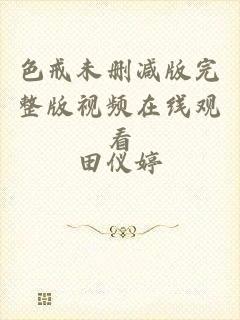 色戒未删减版完
整版视频在线观
看
田仪婷